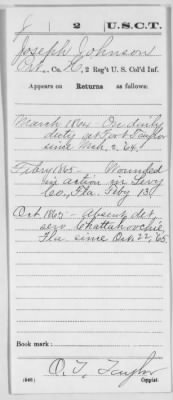 J 2 U.S.C.T.
Joseph Johnson
Pvt., Co. H, 2 Reg't U. S. Col'd Inf.
Appears on Returns as follows:
March 1864 On daily
duty at Fort Taylor
since Mch. 2, 64.
Feby 1865 - Wounded
in action in Levy
Co., Fla. Feby 13
Oct 1865 - Absent det.
serv. Chattahoochie,
Fla. since Oct. 22, 65.
Book mark:
O. T. Taylor
(546) Copyist.